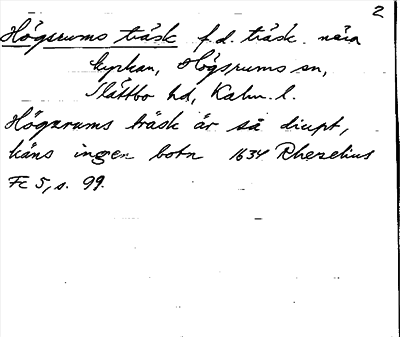 2
Högsrums träsk f.d. träsk nära
kyrkan, Högsrums sn,
Slättbo hd, Kalm. l.
Högsrums träsk är så diupt,
käns ingen botn 1634 Rhezelius
Fc 5, s. 99.